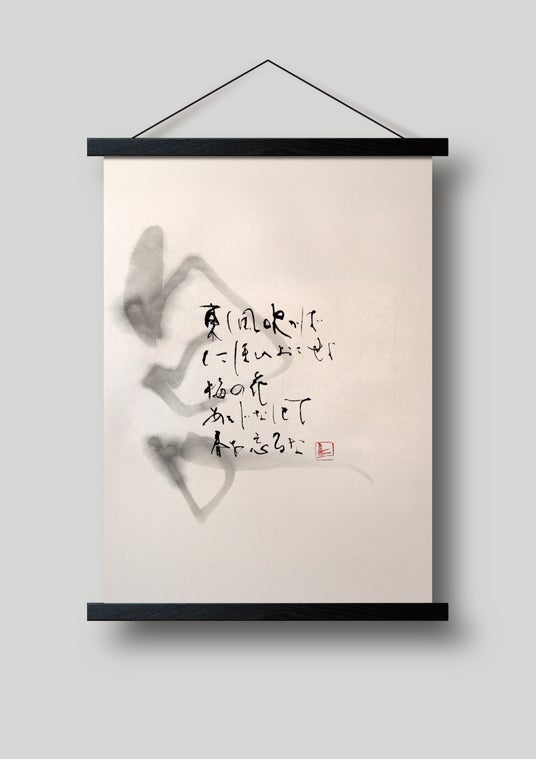 東風吹かば
にほひおこせよ
梅の花
あるじなしとて
春を忘るな